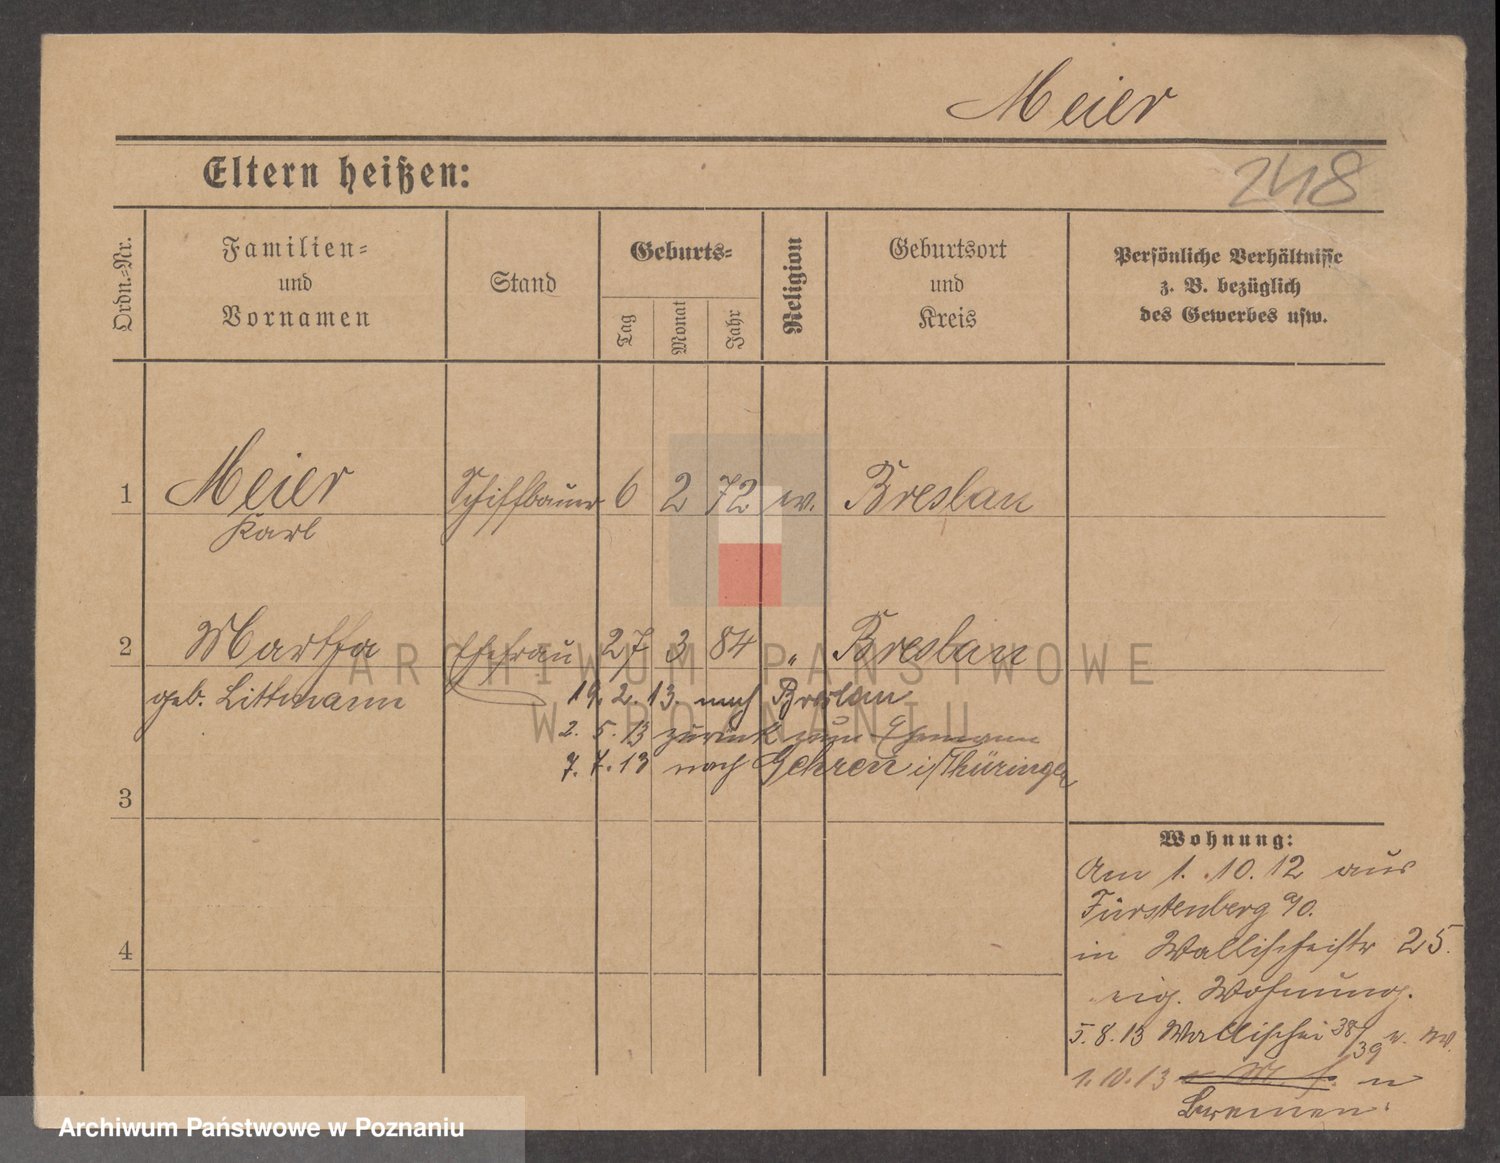 Meier
Eltern heißen:
248
Ordn.-Nr.
Familien-
und
Vornamen
Stand
Geburts-
Tag
Monat
Jahr
Religion
Geburtsort
und
Kreis
Persönliche Verhältnisse
z. B. bezüglich
des Gewerbes usw.
1 Meier Schiffbauer 6 2 72 ev. Breslau
Karl
2 Martha Ehefrau 27 3 84 " Breslau
geb. Littmann
19. 2. 13. nach Breslau
2. 5. 13 zurück zum Ehemann
7. 7. 13 nach Gehren i/Thüringen
3
4
Wohnung:
Am 1. 10. 12 aus
Fürstenberg a/O.
in Wallischeistr 25.
eig. Wohnung.
5. 8. 13 Wallischei 38/39
1. 10. 13 n
Bremen.
ARCHIWUM PAŃSTWOWE
W POZNANIU
Archiwum Państwowe w Poznaniu